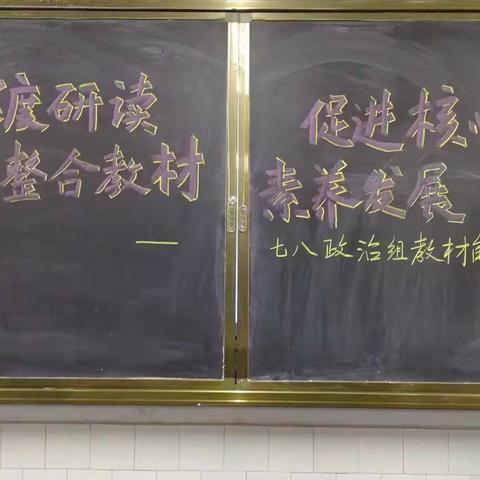 度研读
整合教材
——
促进核心
素养发展
七八政治组教材